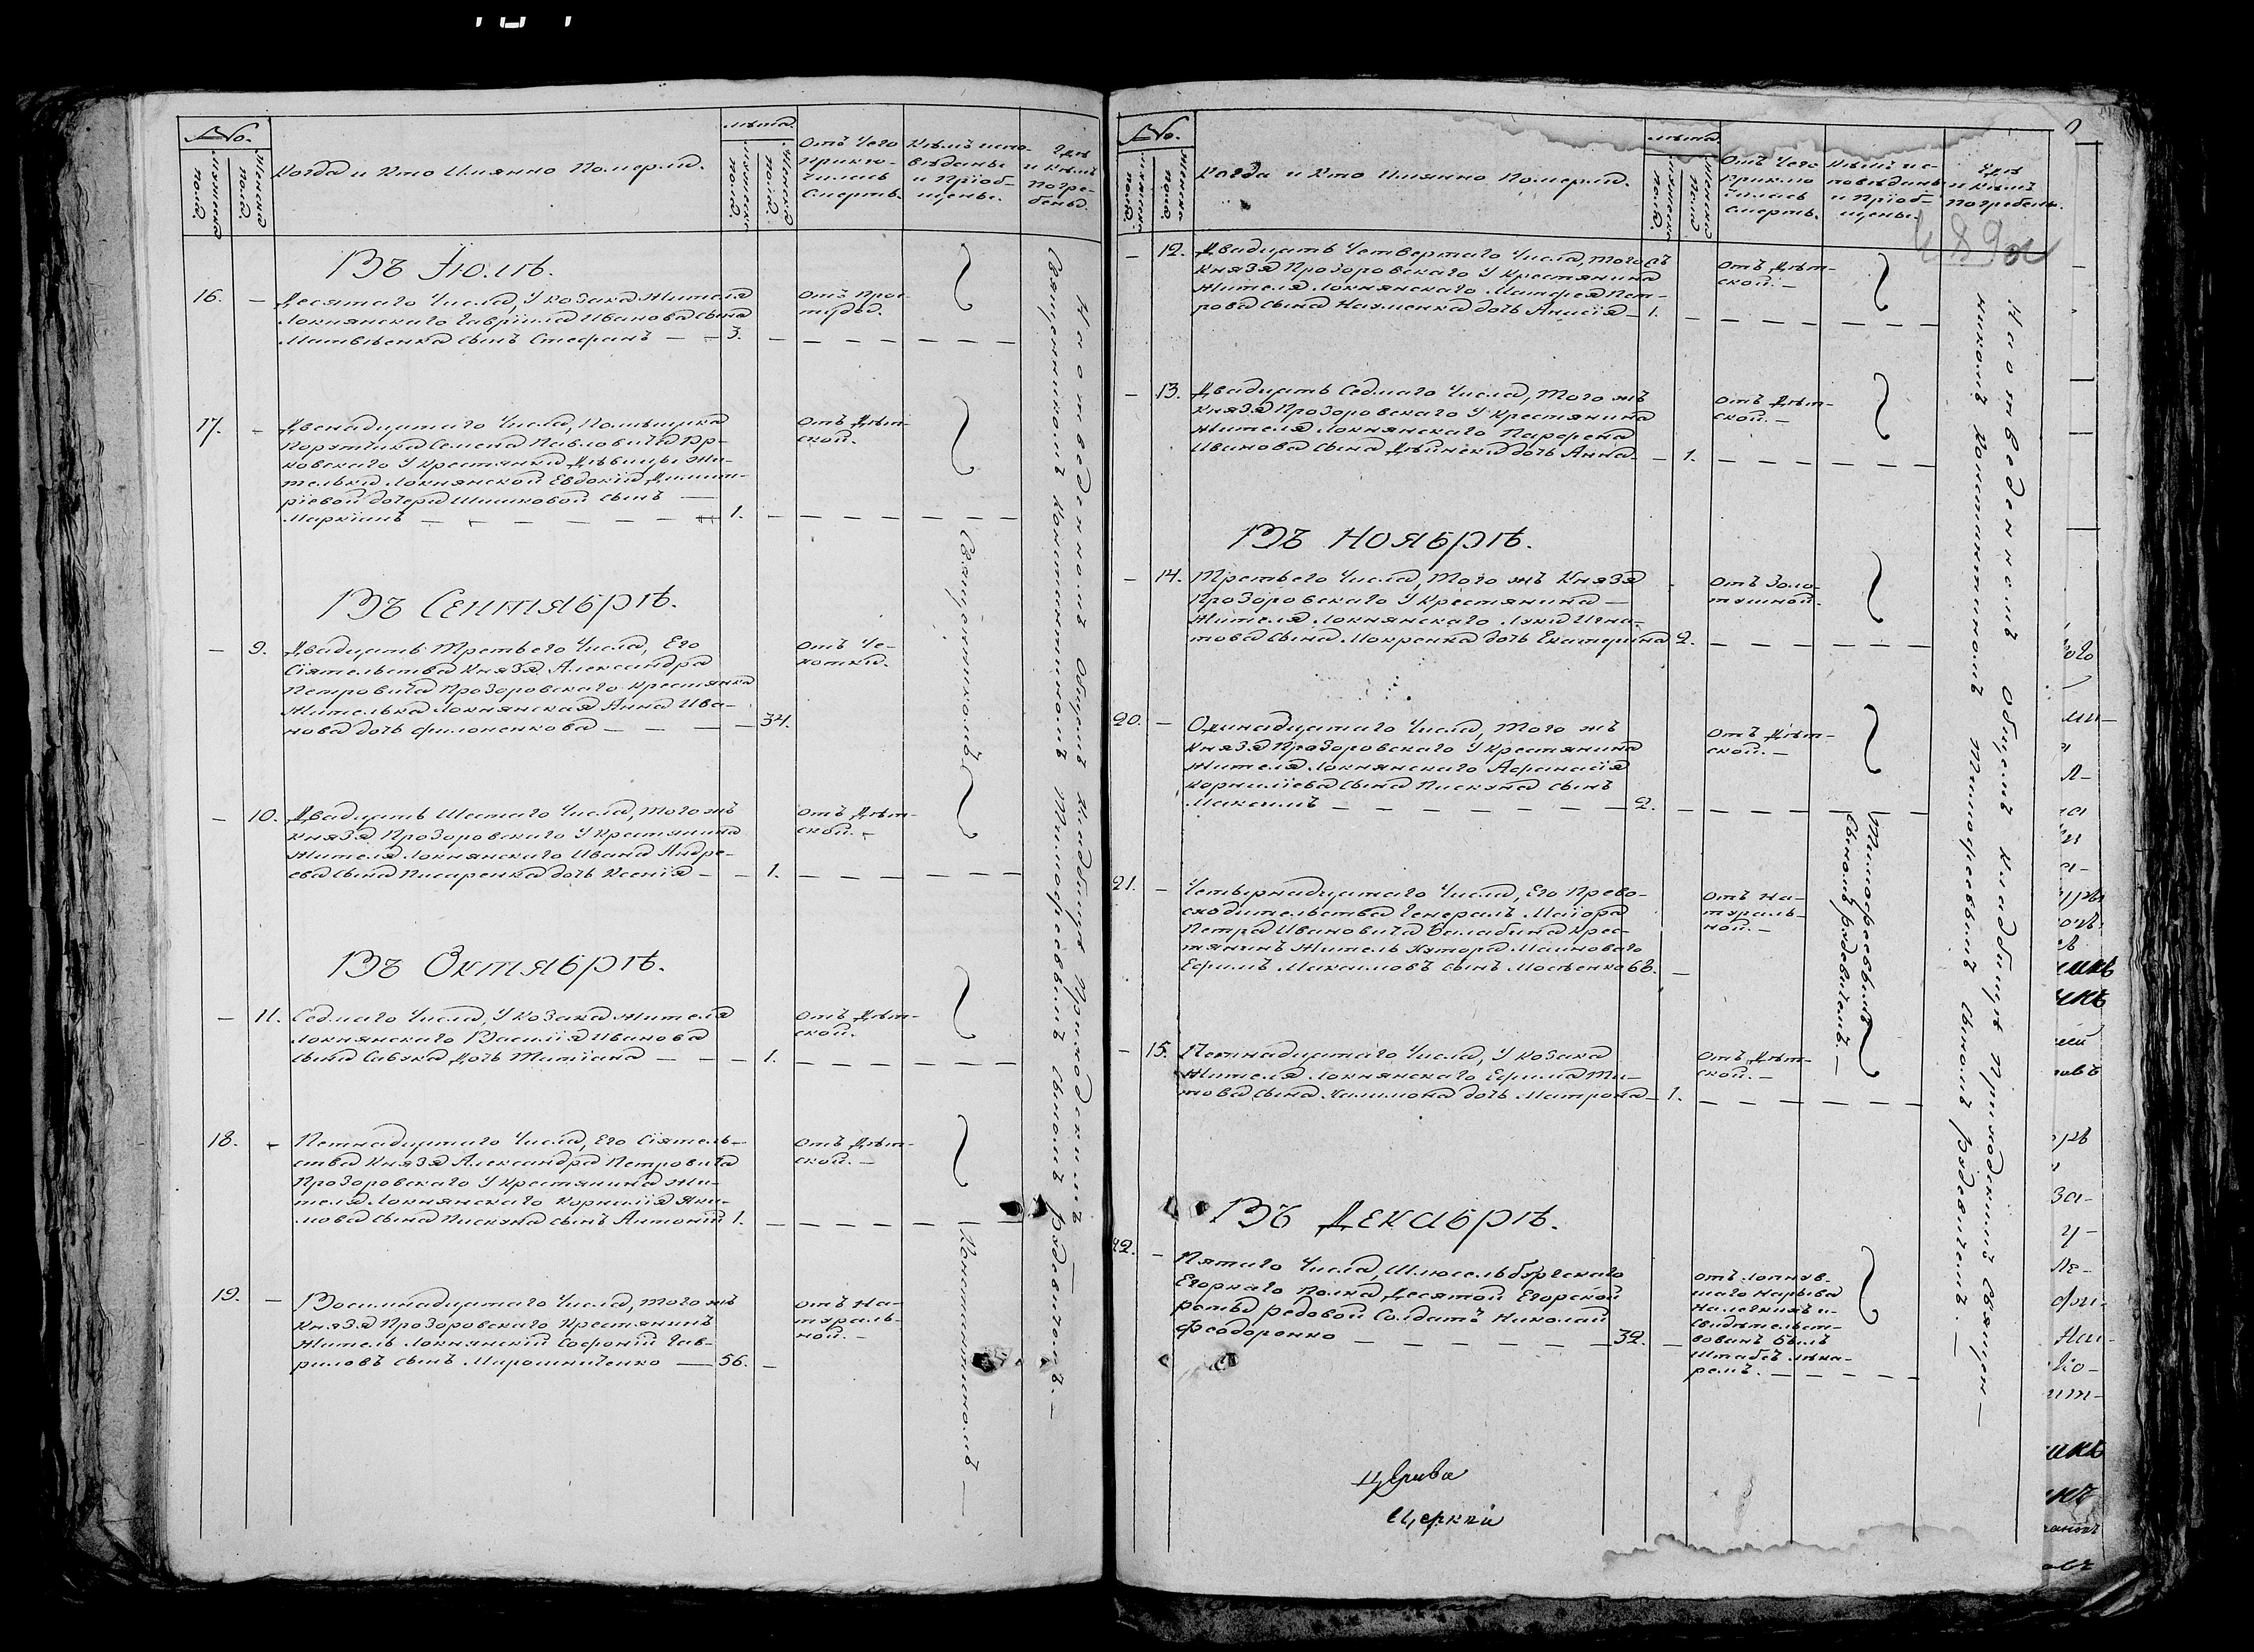 No.
мужеска пола.
женска пола.
Когда и Кто Имянно Померли.
лѣта.
мужеска пола.
женска пола.
Отъ Чего
приклю-
чилась
Смерть.
Кѣмъ испо-
вѣданы
и Пріоб-
щены.
Гдѣ
и Кѣмъ
Погре-
бены.
Въ Іюлѣ.
16. — Десятаго Числа, У козака жителя
локнянскаго Гавріила Иванова сына
Матвѣенка сынъ Стефанъ — — 3. —
Отъ Прос-
туды.
17. — Двенадцатаго Числа, Помѣщика
Порутчика Семена Павловича
ковскаго У крестянки Дѣвицы Жи-
тельки локнянской Евдокіи Димит-
ріевой дочери Шишковой сынъ —
Маркіанъ — — — — — — 1. —
Отъ Дѣт-
ской.
Въ Сентябрѣ.
— 9. Двадцать Третьего Числа, Его
Сіятельства Князя Александра
Петровича Прозоровскаго крестянка
Жителька локнянская Анна Ива-
нова дочь Филоненкова — — — — 34.
Отъ Че-
хотки.
— 10. Двадцать Шестаго Числа, того жъ
Князя Прозоровскаго У крестянина
Жителя локнянскаго Ивана Андре-
ева сына Писаренка дочь Ксенія — — 1.
Отъ Дѣт-
ской. —
Въ Октябрѣ.
— 11. Седмаго Числа, У козака жителя
локнянскаго Василія Иванова
сына Савука дочь Татіана — — — 1.
Отъ Дѣт-
ской.
18. — Петнадцатаго Числа, Его Сіятель-
ства Князя Александра Петровича
Прозоровскаго У крестянина Жи-
теля локнянскаго Корнилія Яки-
мова сына Пискуна сынъ Антоній 1. —
Отъ Дѣт-
ской. —
19. — Восимнадцатаго Числа, того жъ
Князя Прозоровскаго Крестянинъ
Житель локнянскій Софоній Гав-
риловъ сынъ Мирошниченко — 56. —
Отъ На-
тураль-
ной. —
Священникомъ
Константиномъ —
На отведенномъ общемъ кладбищѣ приходскимъ —
Священникомъ Константиномъ Тимофеевымъ сыномъ Рудевичемъ. —
No.
мужеска пола.
женска пола.
Когда и Кто Имянно Померли.
лѣта.
мужеска пола.
женска пола
Отъ Чего
приклю
чилась
Смерть.
Кѣмъ ис-
повѣданы
и Пріоб-
щены.
Гдѣ
и Кѣмъ
Погребены.
— 12. Двадцать Четвертаго Числа, того жъ
Князя Прозоровскаго У крестянина
Жителя локнянскаго Матфея Пет-
рова сына Науменка дочь Анисія — 1.
Отъ Дѣт-
ской. —
— 13. Двадцать Седмаго Числа, того жъ
Князя Прозоровскаго У крестянина
Жителя локнянскаго Парфена
Иванова сына дочь Анна — — 1.
Отъ Дѣт-
ской. —
Въ Ноябрѣ.
— 14. Третьего Числа, того жъ Князя
Прозоровскаго У Крестянина —
Жителя локнянскаго Луки Игна-
това сына Мокренка дочь Екатерина 2.
Отъ Золо-
тушной.
20. — Одинадцатаго Числа, того жъ
Князя Прозоровскаго У крестянина
Жителя локнянскаго Афанасія
Корнилиева сына Пискуна сынъ
Максимъ — — — — — — — 2.
Отъ Дѣт-
ской. —
21. — Четырнадцатаго Числа, Его Прево-
сходительства Генералъ Маіора
Петра Ивановича Балабина крес-
тянинъ Житель Хутора Маиноваго
Ефимъ Максимовъ сынъ Мосѣенко 68. —
Отъ На-
тураль-
ной. —
— 15. Петнадцатаго Числа, У козака
Жителя локнянскаго Ефима Ти-
това сына Калимона дочь Матрона — 1.
Отъ Дѣт-
ской. —
Въ Декабрѣ.
22. — Пятаго Числа, Шлюсельбургскаго
Егорскаго Полка Десятой Егорской
роты редовой Солдатъ Николай
Феодоренко — — — — — 32. —
Отъ лопнув-
шаго Нарыва
На легкихъ и
Свидѣтельст-
вованъ былъ
Штабъ лѣка-
ремъ. —
Тимофеевымъ
сыномъ Рудевичемъ. —
На отведенномъ общемъ кладбищѣ Приходскимъ Священ—
никомъ Константиномъ Тимофеевымъ сыномъ Рудевичемъ. —